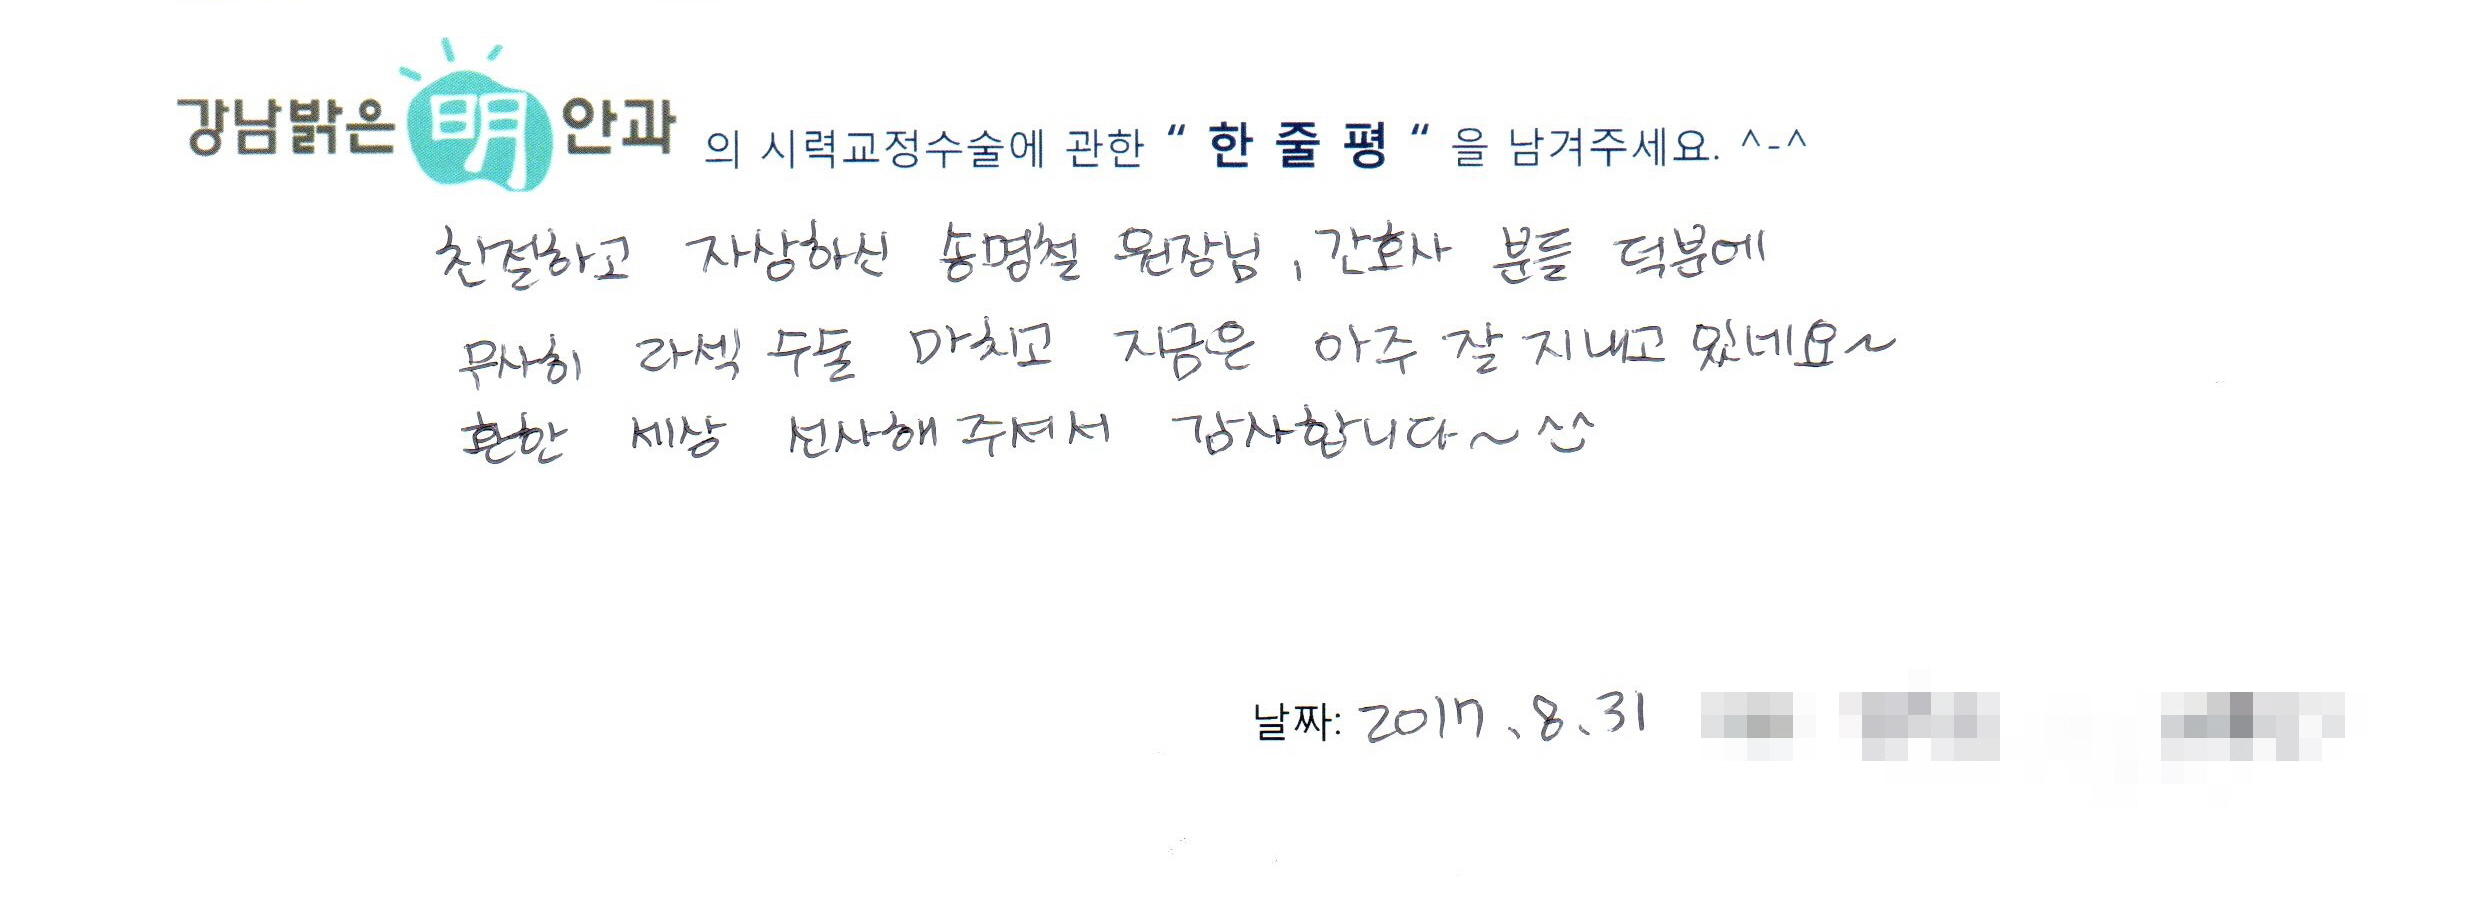 강남밝은 明 안과 의 시력교정수술에 관한 “ 한 줄 평 “ 을 남겨주세요. ^-^
친절하고 자상하신 송명철 원장님, 간호사 분들 덕분에
무사히 라섹 수술 마치고 지금은 아주 잘 지내고 있네요~
환한 세상 선사해 주셔서 감사합니다~ ^^
날짜: 2017. 8. 31